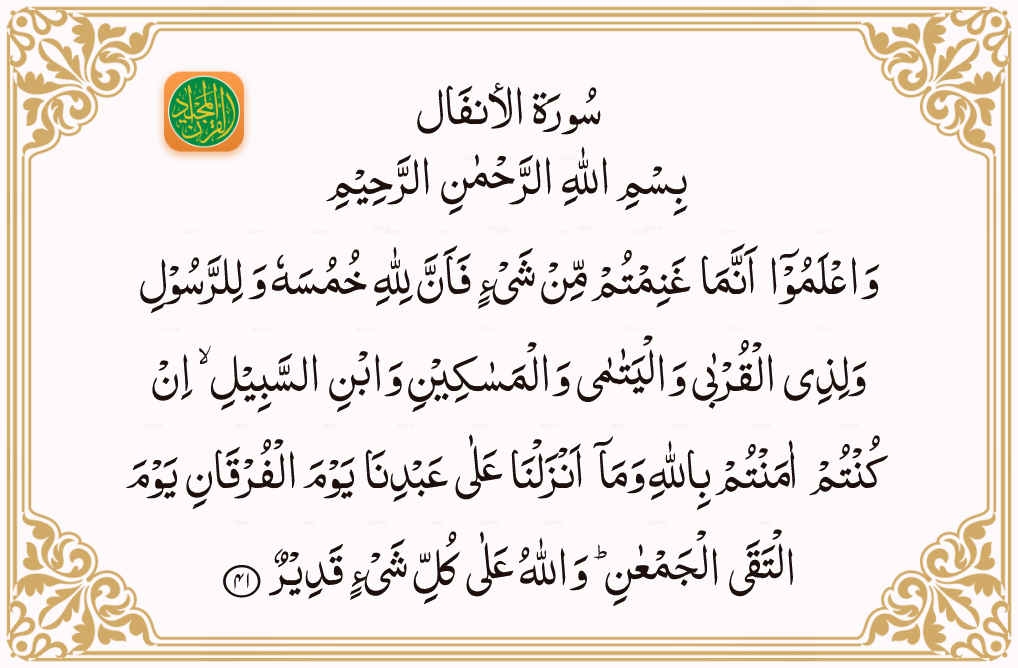 القرآن المجيد
سُورَة الأنفَال
بِسْمِ اللّٰهِ الرَّحْمٰنِ الرَّحِيْمِ
وَاعْلَمُوْۤا اَنَّمَا غَنِمْتُمْ مِّنْ شَیْءٍ فَاَنَّ لِلّٰهِ خُمُسَهٗ وَ لِلرَّسُوْلِ
وَلِذِی الْقُرْبٰی وَالْيَتٰمٰی وَالْمَسٰكِيْنِ وَابْنِ السَّبِيْلِ ۙ اِنْ
كُنْتُمْ اٰمَنْتُمْ بِاللّٰهِ وَمَاۤ اَنْزَلْنَا عَلٰی عَبْدِنَا يَوْمَ الْفُرْقَانِ يَوْمَ
الْتَقَی الْجَمْعٰنِ ؕ وَاللّٰهُ عَلٰی كُلِّ شَیْءٍ قَدِيْرٌ ﴿۴۱﴾